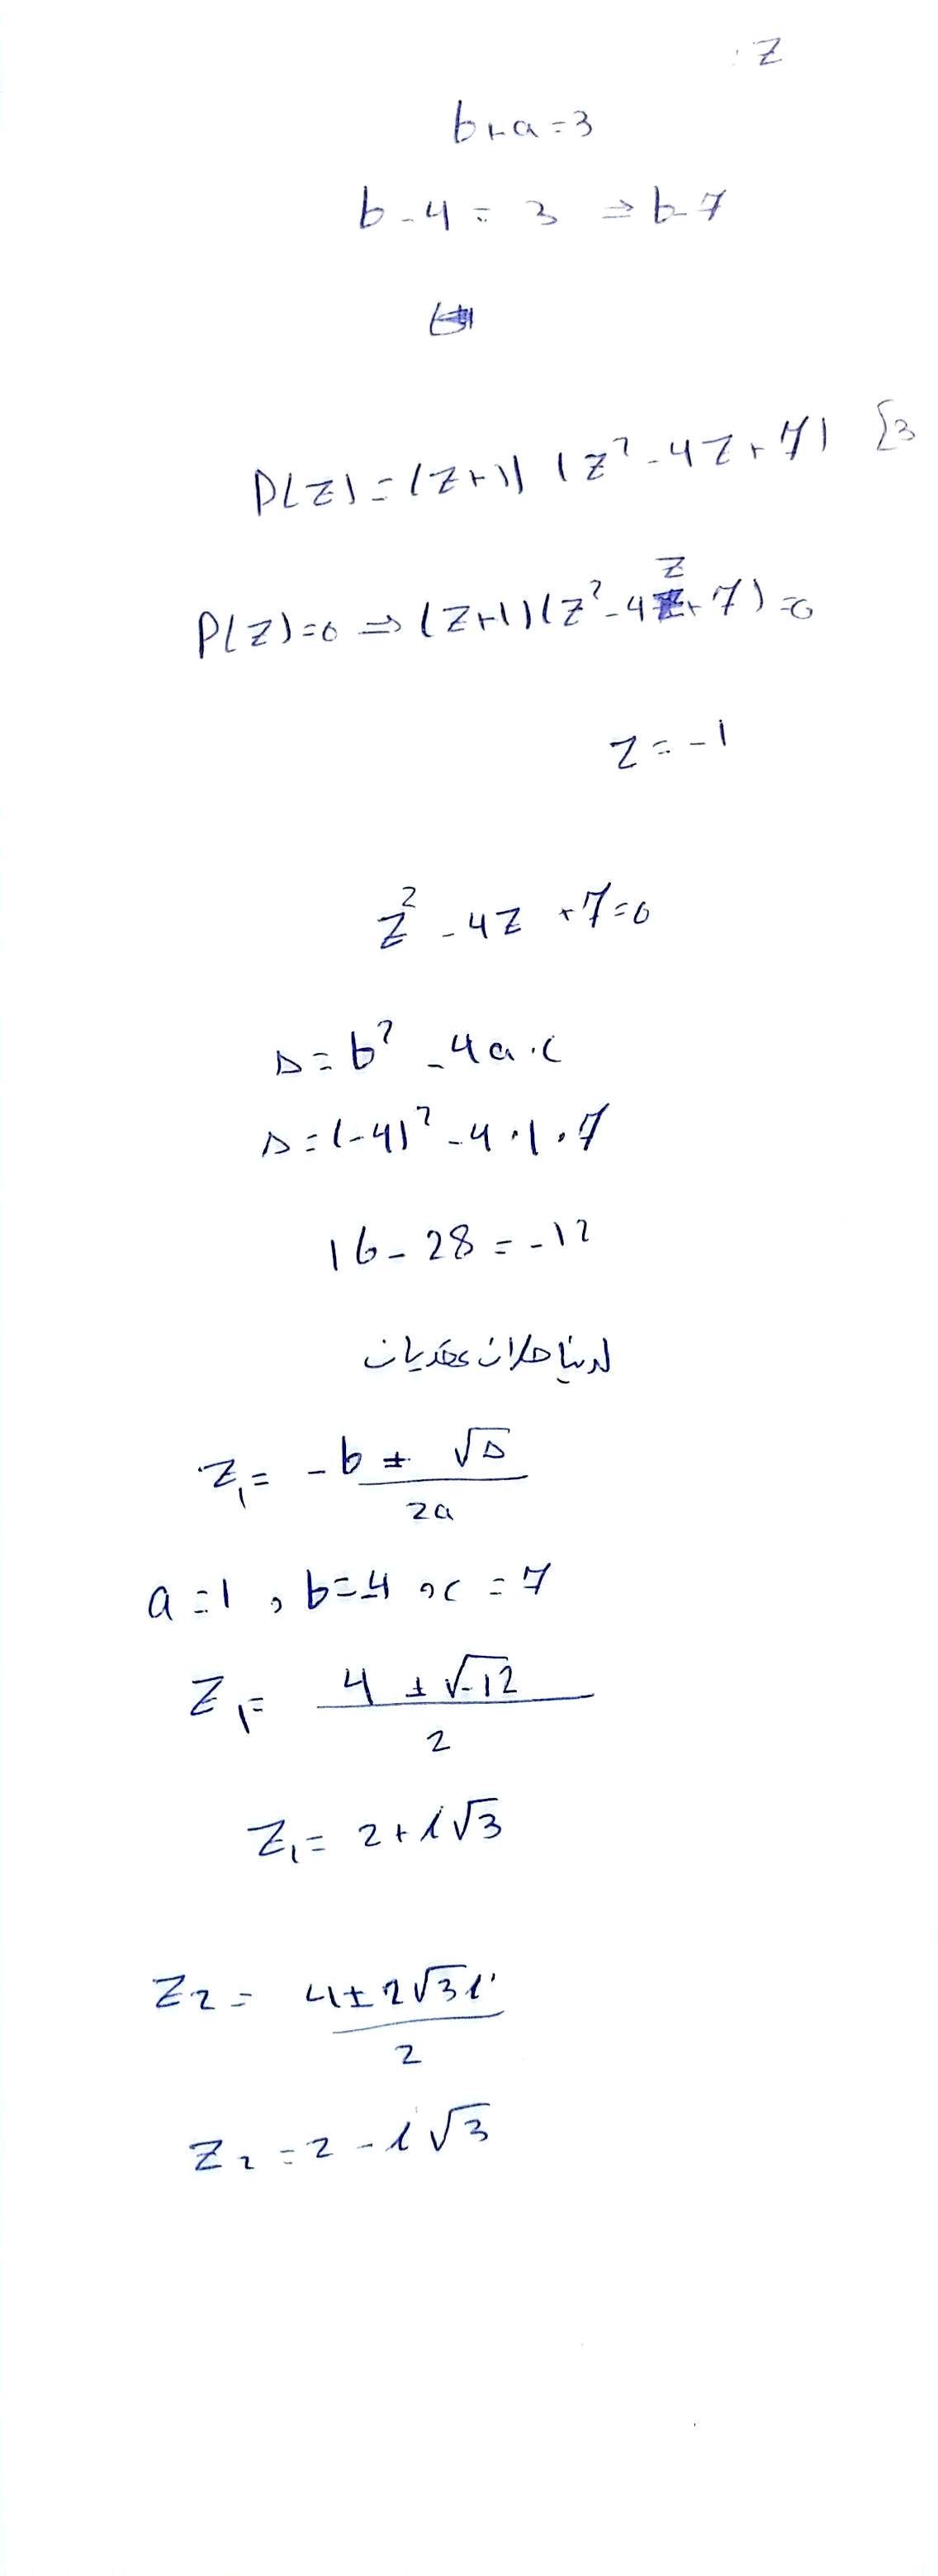 : Z
b+a=3
b-4=3 ⇒ b=7
P(Z)=(Z+1)(Z²-4Z+7) [3
P(Z)=0 ⇒ (Z+1)(Z²-4Z+7)=0
Z=-1
Z²-4Z+7=0
Δ=b²-4a·c
Δ=(-4)²-4·1·7
16-28=-12
لدينا حلان عقديان
Z₁= -b±√Δ / 2a
a=1 , b=-4 , c=7
Z₁= 4±√-12 / 2
Z₁= 2+i√3
Z₂= 4±2√3i / 2
Z₂=2-i√3